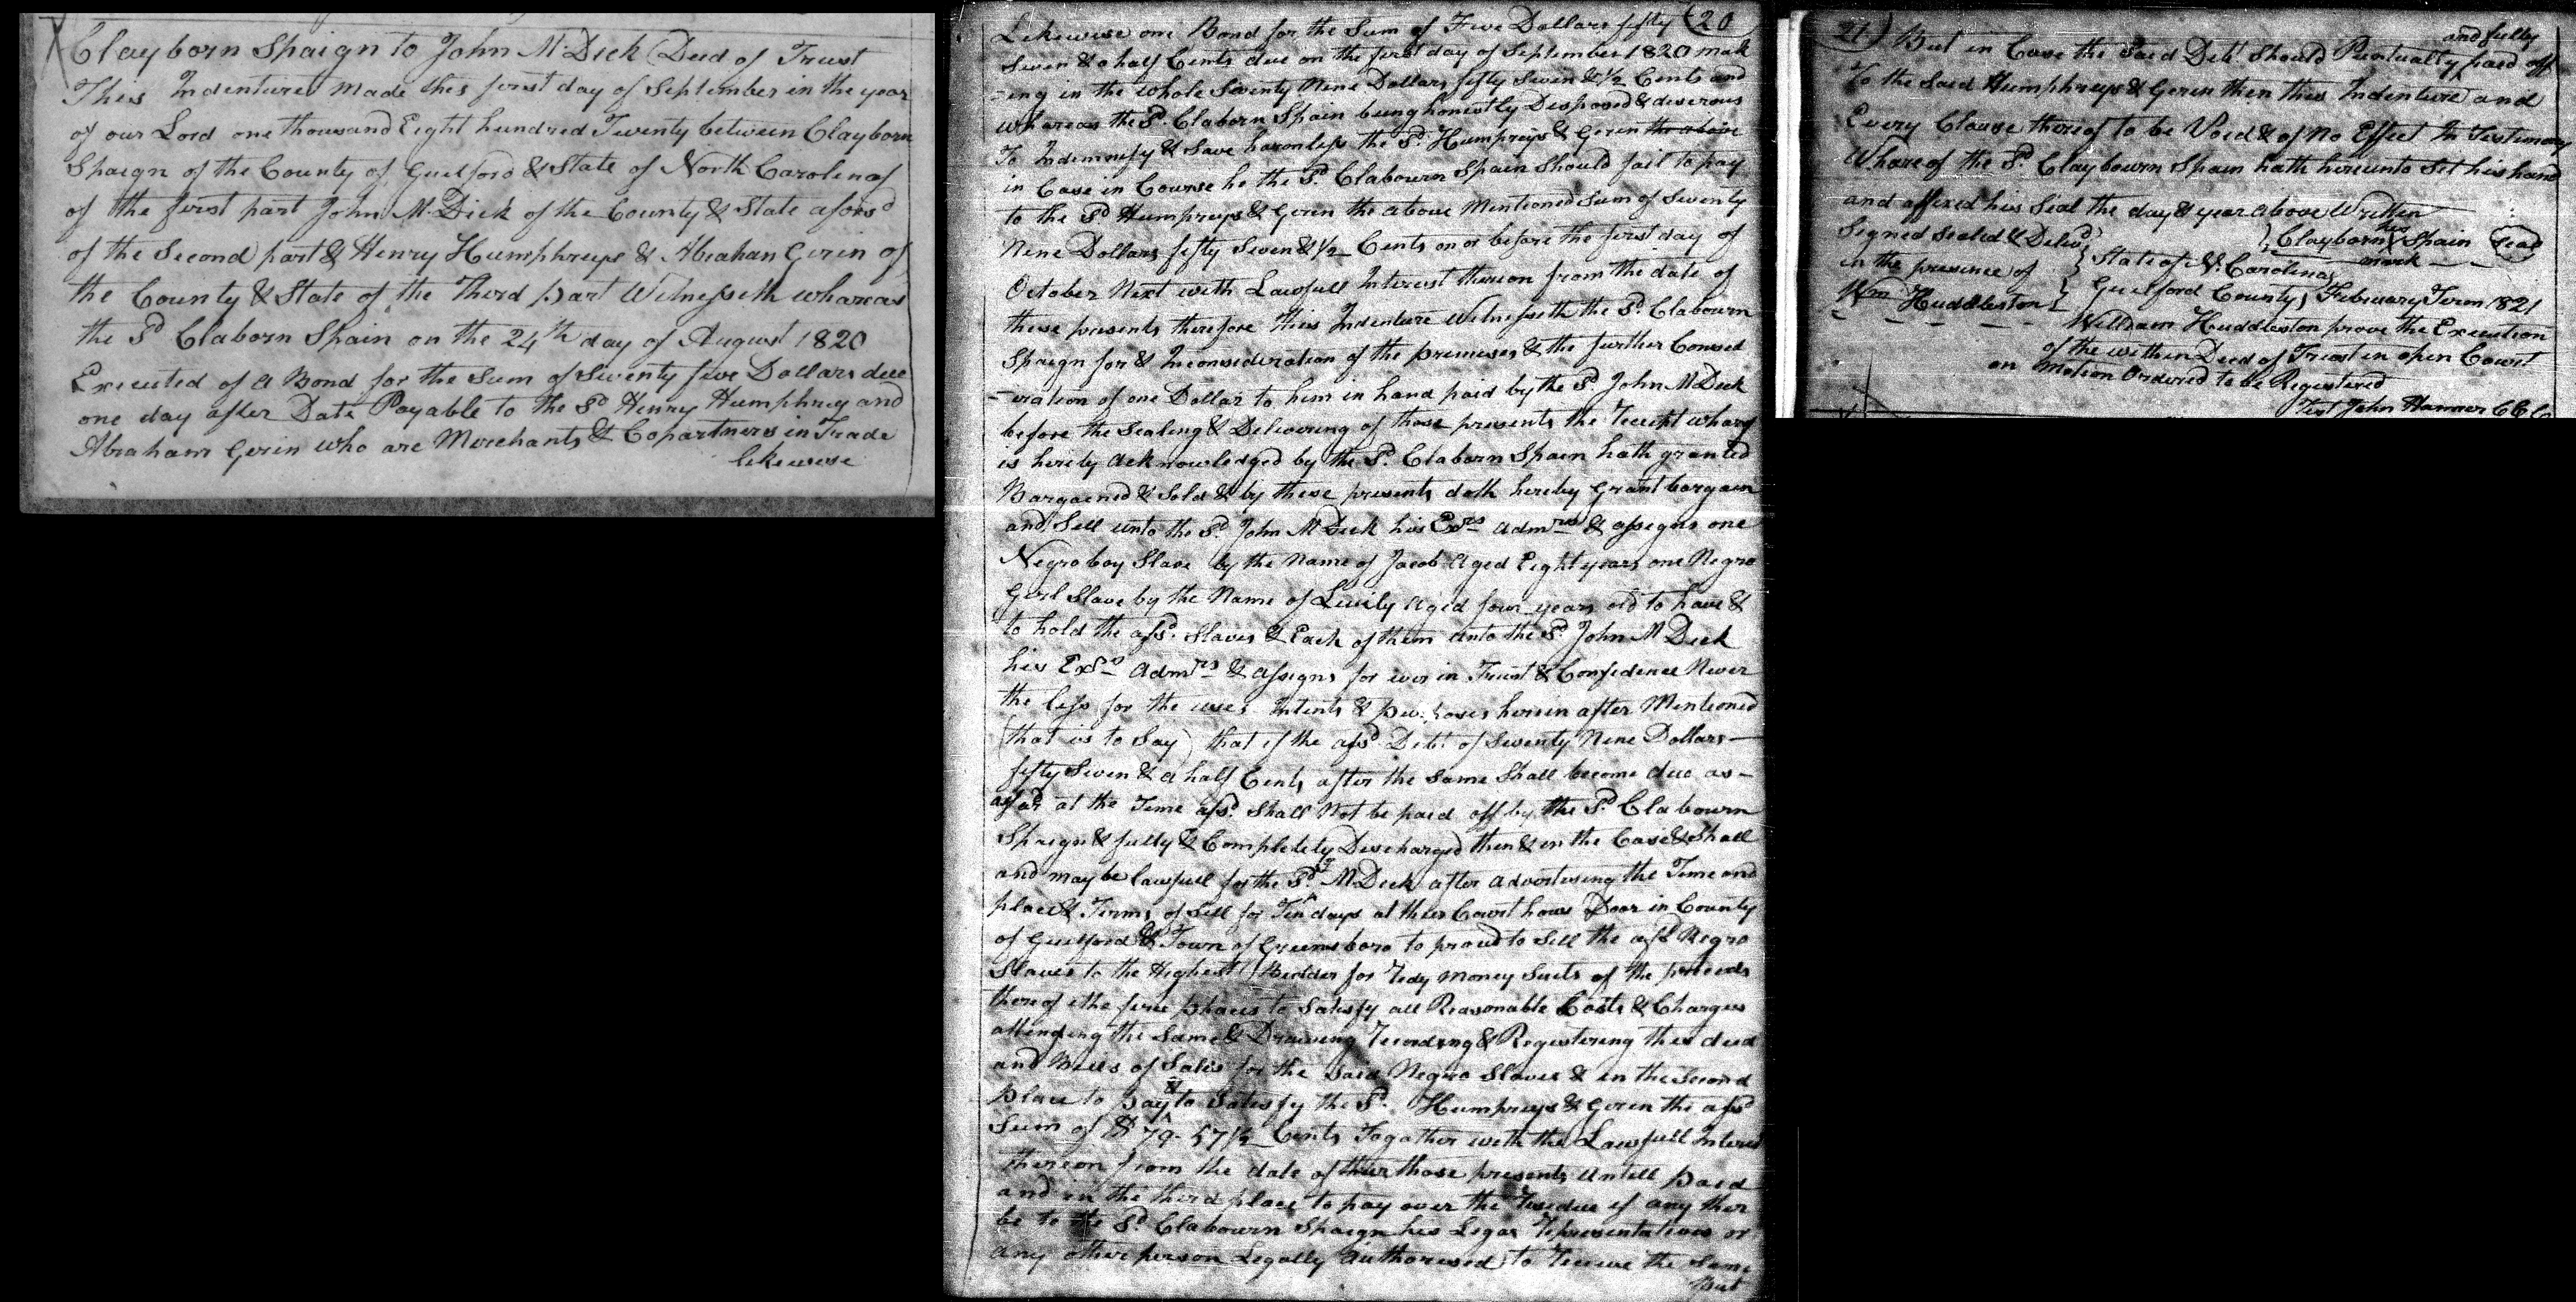 Clayborn Spaign to John M. Dick (Deed of Trust
This Indenture made this first day of September in the year
of our Lord one thousand Eight hundred Twenty between Clayborn
Spaign of the County of Guilford & State of North Carolina of
of the first part John M. Dick of the County & State aforsd
of the Second part & Henry Humphreys & Abraham Geren of
the County & State of the Third part Witnesseth whareas
the Sd Claborn Spain on the 24th day of August 1820
Executed of a Bond for the Sum of Seventy five Dollars due
one day after Date Payable to the Sd Henry Humphrey and
Abraham Geren who are Merchants & Copartners in Trade
likewise
20
Likewise one Bond for the Sum of Five Dollars fifty
Seven & a half Cents due on the first day of September 1820 mak
-ing in the whole Seventy Nine Dollars fifty Seven & 1/2 Cents and
whareas the Sd. Claborn Spain being honestly Disposed & desirous
To Indemnify & Save harmless the Sd. Humpreys & Geren the above
in Case in Course he the Sd. Clabourn Spain Should fail to pay
to the Sd Humpreys & Geren the above Mentioned Sum of Seventy
Nine Dollars fifty Seven & 1/2 Cents on or before the first day of
October Next with Lawfull Interest thereon from the date of
these presents therefore this Indenture Witnesseth the Sd. Clabourn
Spaign for & Inconsideration of the premises & the further Consid
-eration of one Dollar to him in hand paid by the Sd. John M Dick
before the Sealing & Delivering of those presents the receipt wharof
is hereby acknowledged by the Sd. Claborn Spain hath granted
Bargained & Sold & by these presents doth hereby Grant bargain
and Sell unto the Sd. John M Dick his Exrs Admrs & assigns one
Negro boy Slave by the Name of Jacob Aged Eight years one Negro
Girl Slave by the Name of Livily Aged four years old to have &
to hold the afsd. Slaves & Each of them unto the Sd. John M Dick
his Exrs Admrs & assigns for ever in Trust & Confidence Never
the less for the uses Intents & purposes herein after Mentioned
(that is to Say) that if the afsd Debt of Seventy Nine Dollars
fifty Seven & a half Cents after the Same Shall become due as
afsd at the Time afsd. Shall Not be paid off by the Sd. Clabourn
Spaign & fully & Completely Discharged then & in the Case & Shall
and may be lawfull for the Sd. J M Dick after advertising the Time and
place & Terms of Sell for Ten days at ther Court hous Door in County
of Guilford & Town of Greensboro to proud to Sell the afsd Negro
Slaves to the Highest Bidder for redy money Suits of the proceeds
thereof the first places to Satisfy all Reasonable Costs & Charges
attending the Same & Drawing recording & Registering this deed
and Bills of Sales for the Said Negro Slaves & in the Second
place to pay & to Satisfy the Sd. Humpreys & Geren the afsd
Sum of $ 79. 57 1/2 Cents Togather with the Lawfull Interest
thereon from the date of ther those presents untill paid
and in the third place to pay over the residue if any ther
be to the Sd Clabourn Spaign his Legas representatives or
any other person Legally Authorised to receive the Same
But
21) But in Case the Said Debt Should Puntually and fully paid off
To the Said Humphreys & Geren then this Indenture and
Every Clause thereof to be Void & of No Effect In Testimony
Whareof the Sd. Claybourn Spain hath hereunto Set his hand
and affixed his Seal the day & year above Written
Signed Sealed & Delivd } Clayborn his mark Spain Seal
in the presence of } State of N. Carolina
Wm Huddleston } Guilford County } February Term 1821
William Huddleston prove the Execution
of the within Deed of Trust in open Court
on motion Ordered to be Registered
Test John Hanner CC Co